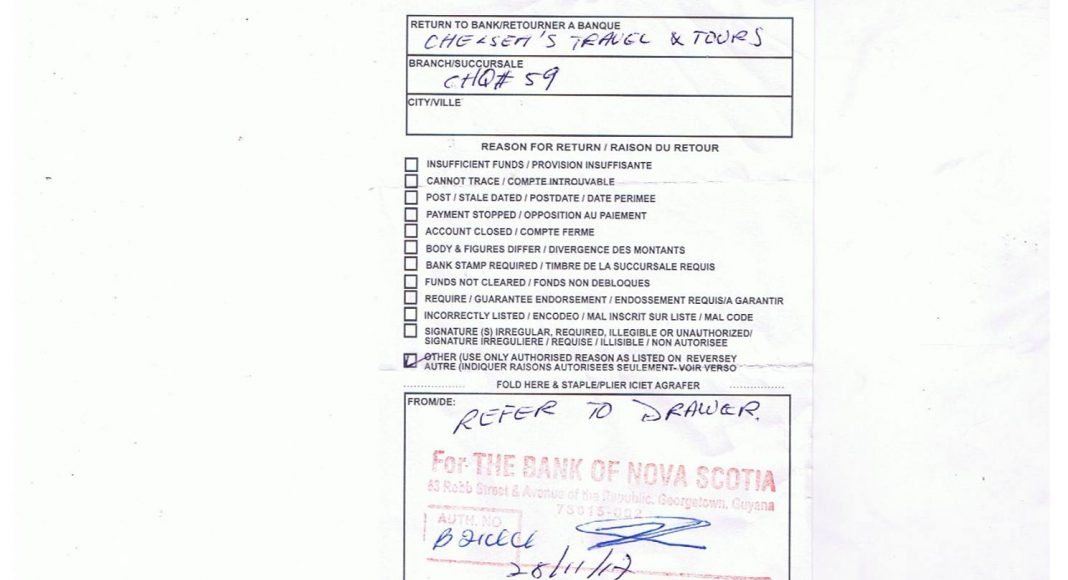 RETURN TO BANK/RETOURNER A BANQUE
CHELSEA'S TRAVEL & TOURS
BRANCH/SUCCURSALE
CHQ# 59
CITY/VILLE
REASON FOR RETURN / RAISON DU RETOUR
INSUFFICIENT FUNDS / PROVISION INSUFFISANTE
CANNOT TRACE / COMPTE INTROUVABLE
POST / STALE DATED / POSTDATE / DATE PERIMEE
PAYMENT STOPPED / OPPOSITION AU PAIEMENT
ACCOUNT CLOSED / COMPTE FERME
BODY & FIGURES DIFFER / DIVERGENCE DES MONTANTS
BANK STAMP REQUIRED / TIMBRE DE LA SUCCURSALE REQUIS
FUNDS NOT CLEARED / FONDS NON DEBLOQUES
REQUIRE / GUARANTEE ENDORSEMENT / ENDOSSEMENT REQUIS/A GARANTIR
INCORRECTLY LISTED / ENCODEO / MAL INSCRIT SUR LISTE / MAL CODE
SIGNATURE (S) IRREGULAR, REQUIRED, ILLEGIBLE OR UNAUTHORIZED/
SIGNATURE IRREGULIERE / REQUISE / ILLISIBLE / NON AUTORISEE
OTHER (USE ONLY AUTHORISED REASON AS LISTED ON REVERSEY
AUTRE (INDIQUER RAISONS AUTORISEES SEULEMENT- VOIR VERSO
FOLD HERE & STAPLE/PLIER ICIET AGRAFER
FROM/DE:
REFER TO DRAWER.
For THE BANK OF NOVA SCOTIA
63 Robb Street & Avenue of the Republic, Georgetown, Guyana
73015-002
AUTH. NO
28/11/17